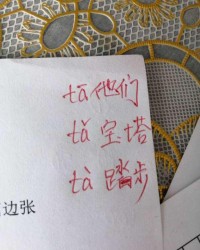 tā他们
tǎ宝塔
tà踏步
边张